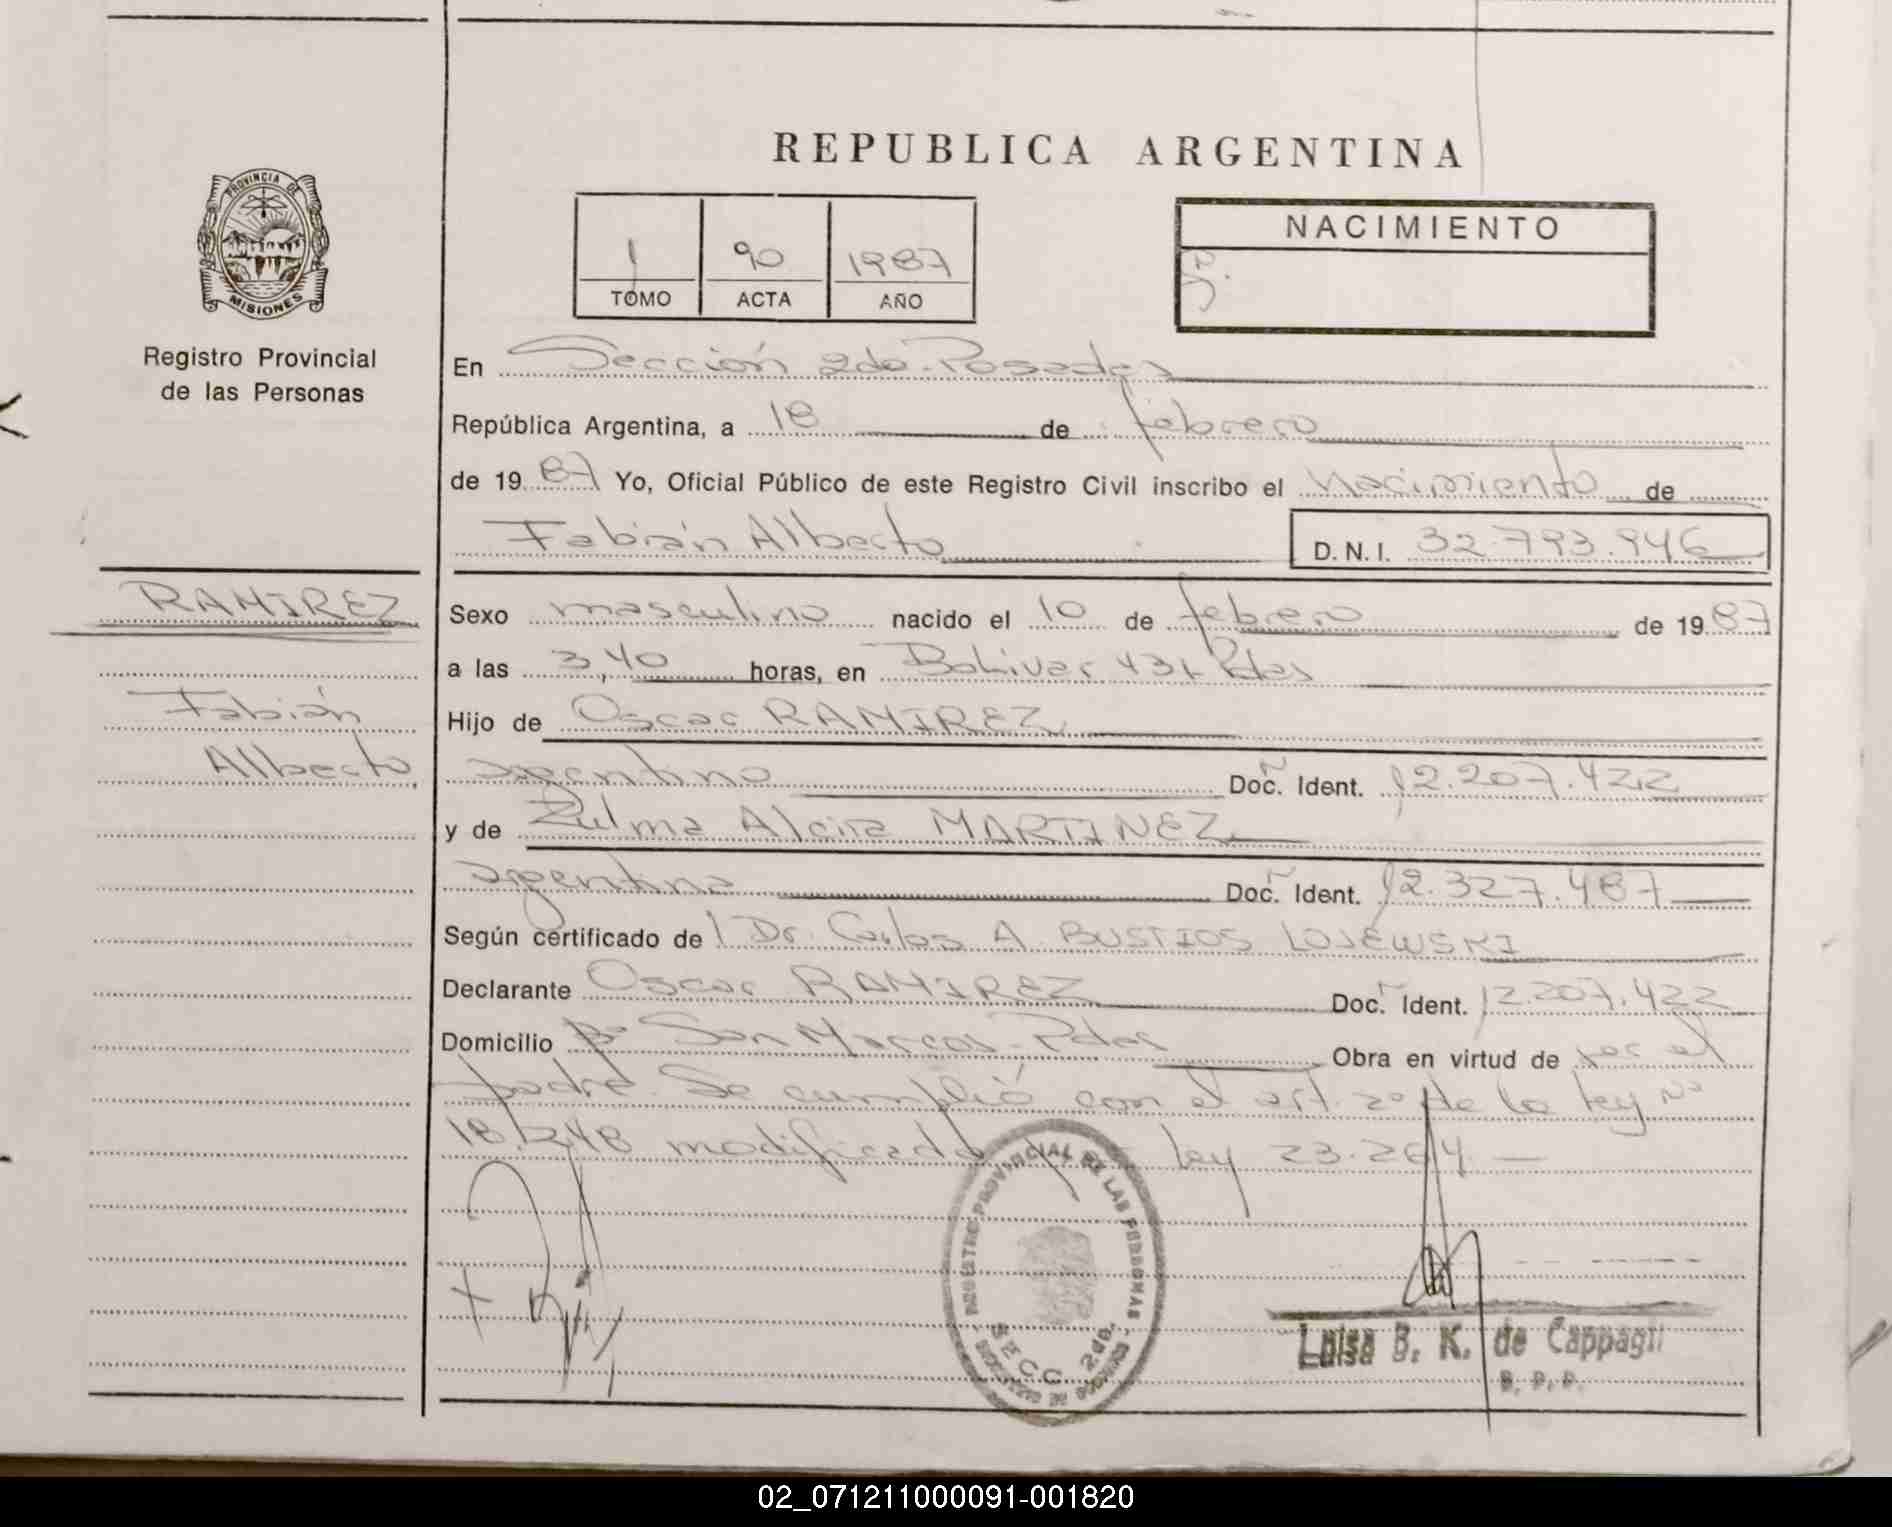 REPUBLICA ARGENTINA
PROVINCIA DE
MISIONES
Registro Provincial
de las Personas
1 90 1987
TOMO ACTA AÑO
NACIMIENTO
En Sección 2da. Posadas
República Argentina, a 18 de febrero
de 1987 Yo, Oficial Público de este Registro Civil inscribo el Nacimiento de
Fabián Alberto D.N.I. 32.793.946
RAMIREZ
Fabián
Alberto
Sexo masculino nacido el 10 de febrero de 1987
a las 3,40 horas, en Bolivar Pdas
Hijo de Oscar RAMIREZ
argentino Doc. Ident. 12.207.422
y de Zulma Alcira MARTINEZ
argentina Doc. Ident. 12.327.487
Según certificado de l Dr. Carlos A. BUSTIOS LOJEWSKI
Declarante Oscar RAMIREZ Doc. Ident. 12.207.422
Domicilio Bº San Marcos - Pdas Obra en virtud de ser el
padre. Se cumplió con el art. 2º de la ley Nº
18.248 modificada ley 23.264. —
REGISTRO PROVINCIAL DE LAS PERSONAS
SECC. 2da.
Luisa B. K. de Cappagli
02_071211000091-001820